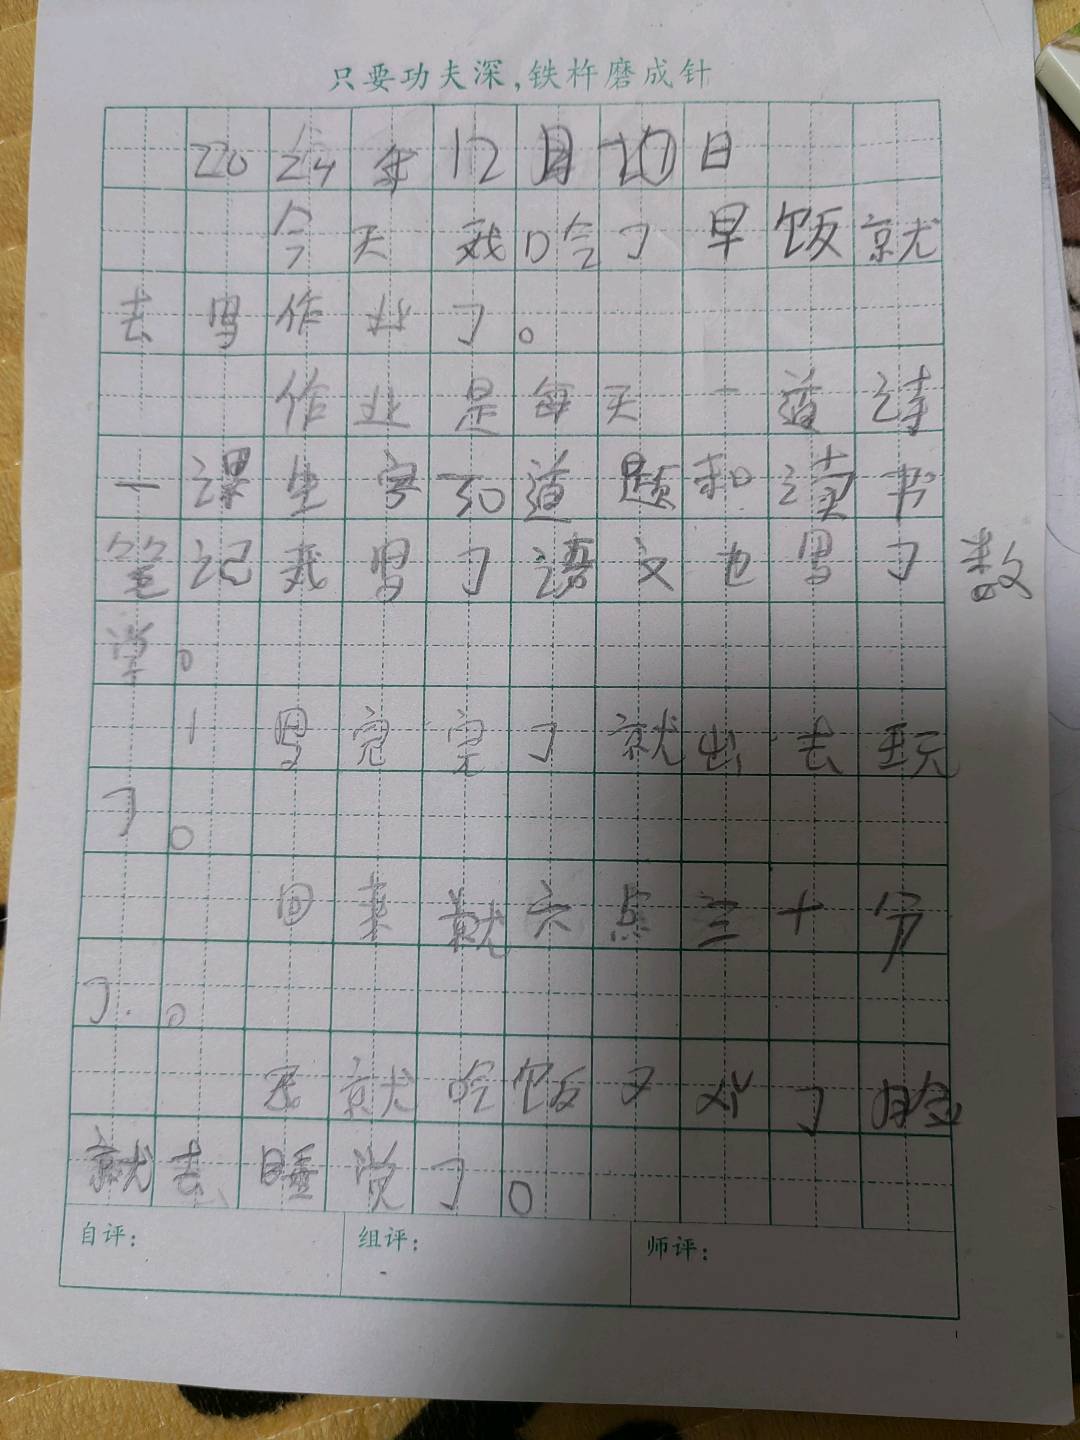 只要功夫深,铁杵磨成针
2024年12月10日
今天我吃了早饭就
去写作业了。
作业是每天一道诗
一课生字 30道题和读书
笔记我写了语文也写了数
学。
写完了就出去玩
了。
回来就六点三十分
了。
就吃饭又
就去睡觉了。
自评: 组评: 师评: